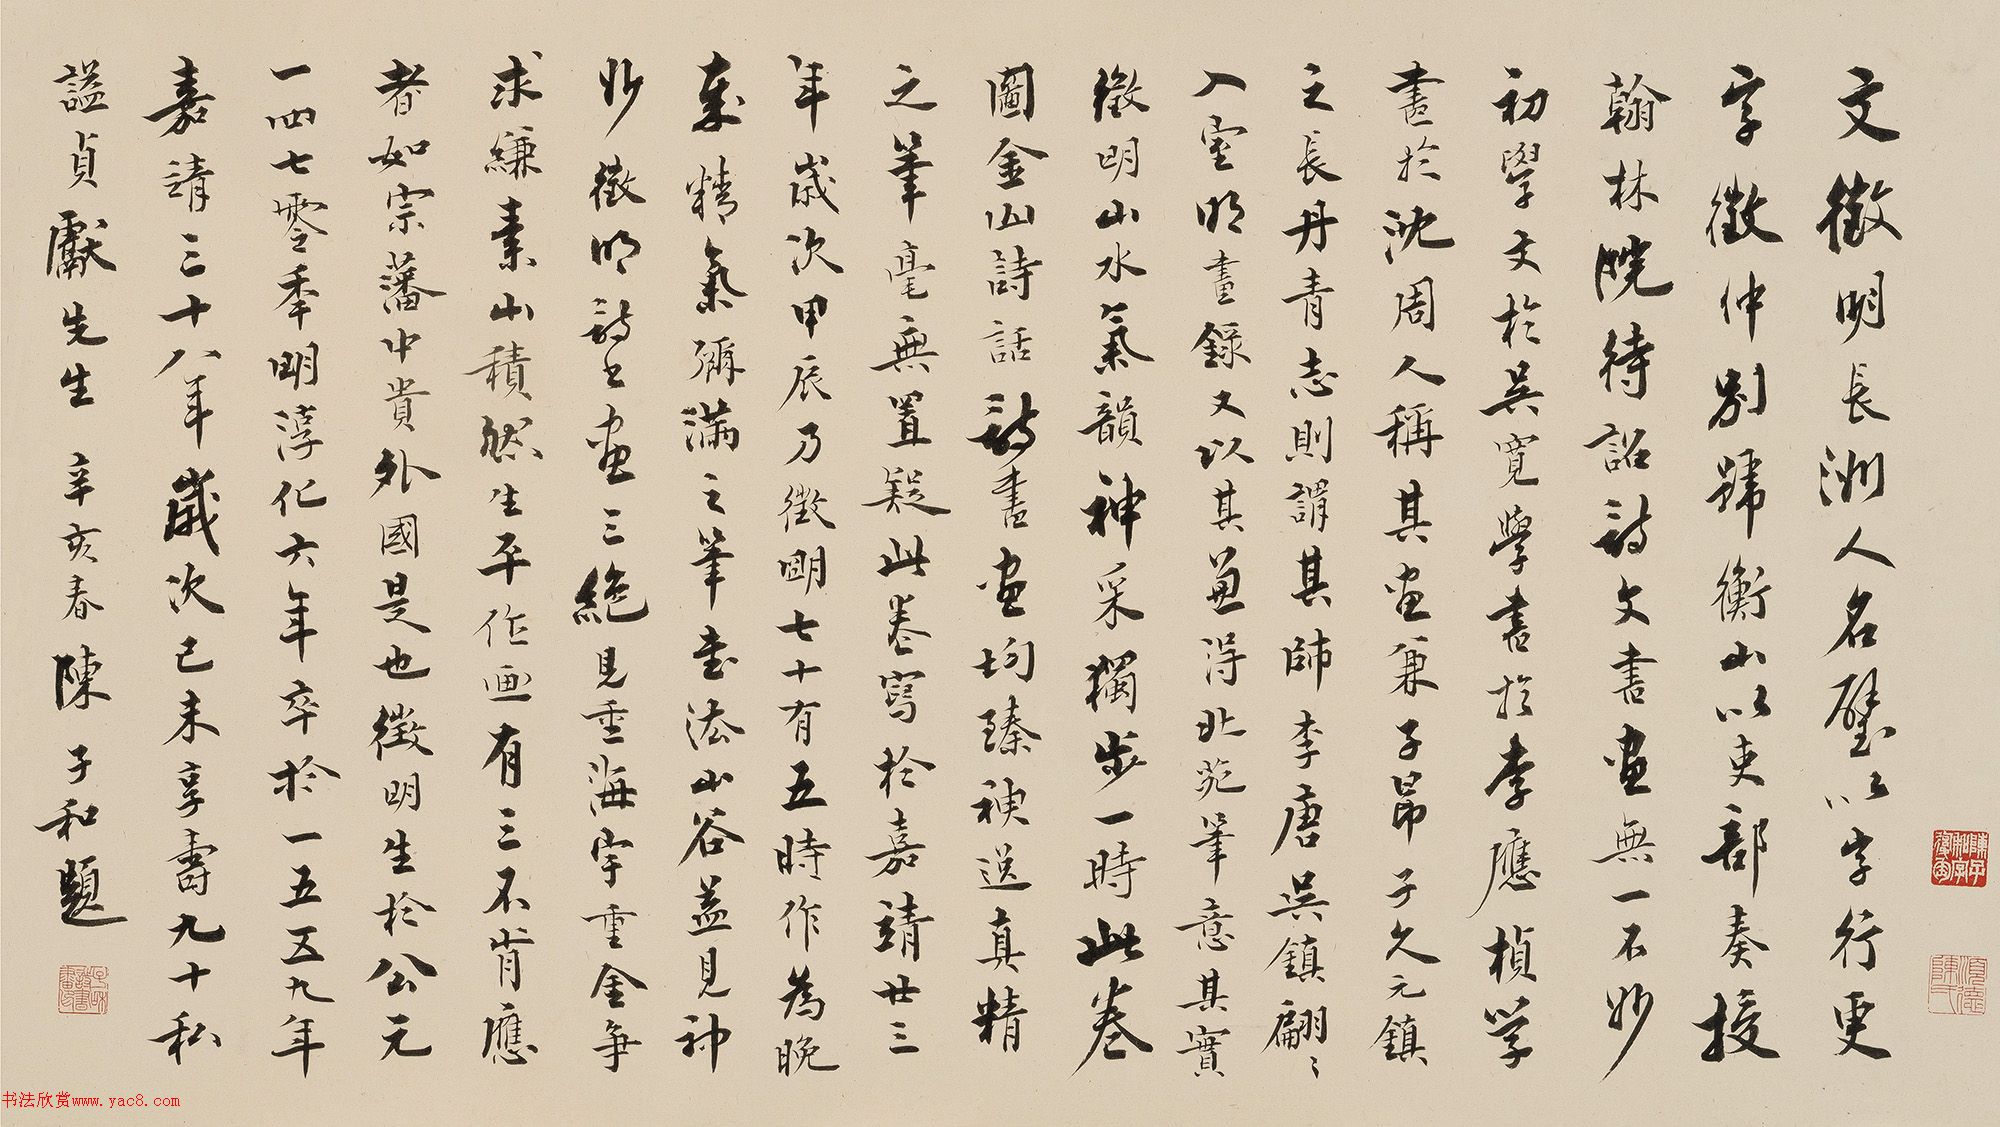 文徵明長洲人名璧以字行更
字徵仲別號衡山以吏部奏授
翰林院待詔詩文書畫無一不妙
初學文於吳寬學書於李應楨學
畫於沈周人稱其畫兼子昂子久元鎮
之長丹青志則謂其師李唐吳鎮翩〻
入室明畫錄又以其兼得北苑筆意其實
徵明山水氣韻神采獨步一時此卷
圖金山詩話詩書畫均臻神逸真精
之筆毫無置疑此卷寫於嘉靖廿三
年歲次甲辰乃徵明七十有五時作為晚
年精氣彌滿之筆書法山谷益見神
妙徵明詩書画三絕見重海宇重金爭
求縑素山積然生平作画有三不肯應
者如宗藩中貴外國是也徵明生於公元
一四七零季明淳化六年卒於一五五九年
嘉靖三十八年歲次己未享壽九十私
謚貞獻先生 辛亥春 陳子和題
书法欣赏www.yac8.com